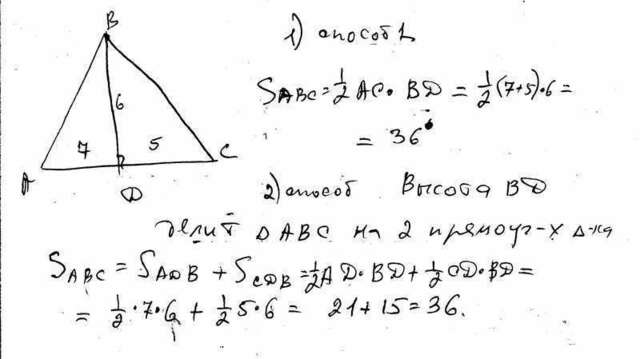 B
1) способ 1
6
S_ABC = 1/2 AC · BD = 1/2 (7+5) · 6 =
7 5
= 36
A D C
2) способ Высота BD
делит Δ ABC на 2 прямоуг-х Δ-ка
S_ABC = S_ADB + S_CDB = 1/2 AD · BD + 1/2 CD · BD =
= 1/2 · 7 · 6 + 1/2 5 · 6 = 21 + 15 = 36.